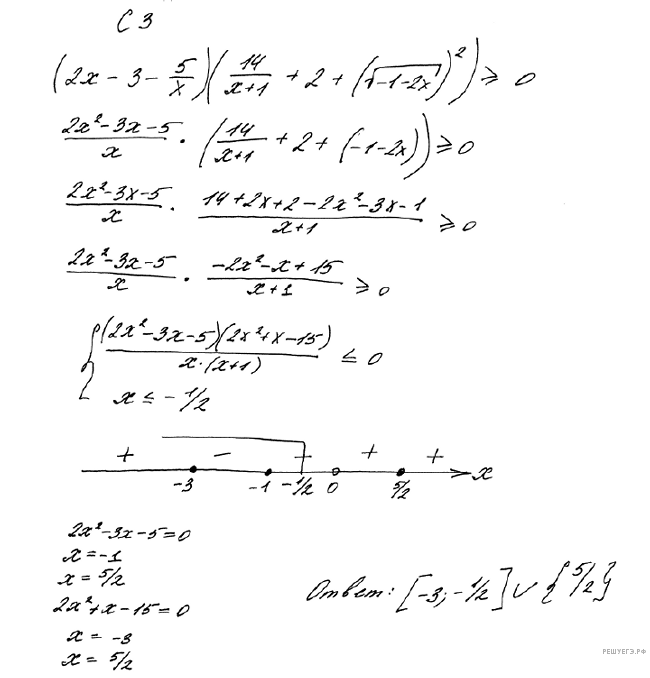 С 3
(2x - 3 - 5/x)(14/(x+1) + 2 + (√(-1-2x))²) ≥ 0
(2x²-3x-5)/x · (14/(x+1) + 2 + (-1-2x)) ≥ 0
(2x²-3x-5)/x · (14+2x+2-2x²-3x-1)/(x+1) ≥ 0
(2x²-3x-5)/x · (-2x²-x+15)/(x+1) ≥ 0
{ (2x²-3x-5)(2x²+x-15)/(x·(x+1)) ≤ 0
x ≤ -1/2
+ - + + +
-3 -1 -1/2 0 5/2 x
2x²-3x-5=0
x=-1
x = 5/2
2x²+x-15=0
x = -3
x = 5/2
Ответ: [-3; -1/2] ∪ {5/2}
РЕШУЕГЭ.РФ